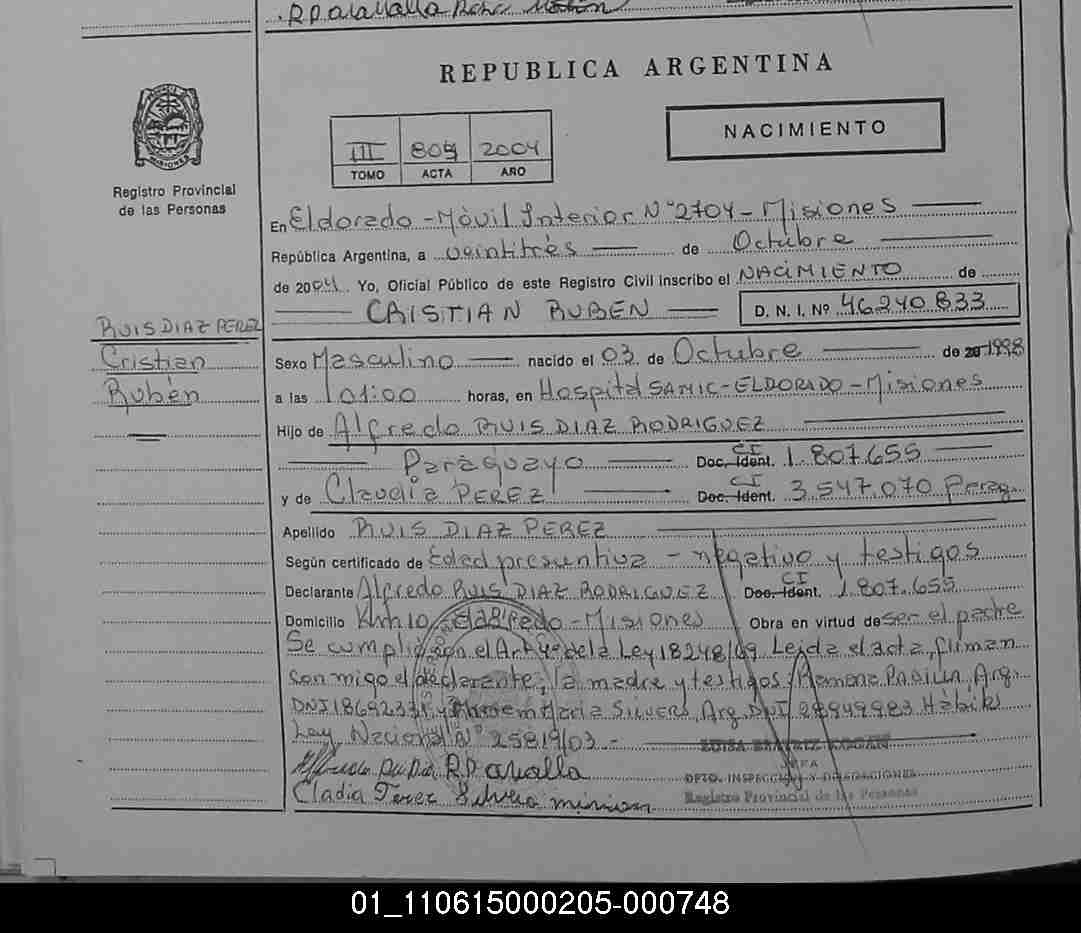 REPUBLICA ARGENTINA
NACIMIENTO
III 809 2004
TOMO ACTA AÑO
Registro Provincial
de las Personas
En Eldorado - Móvil Interior N° 2704 - Misiones
República Argentina, a veintitrés de Octubre
de 2004 Yo, Oficial Público de este Registro Civil inscribo el NACIMIENTO de
CRISTIAN RUBEN D. N. I. Nº 46.240.833
RUIS DIAZ PEREZ
Cristian
Rubén
Sexo Masculino nacido el 03 de Octubre de 1998
a las 01:00 horas, en Hospital SAMIC - ELDORADO - Misiones
Hijo de Alfredo RUIS DIAZ RODRIGUEZ
Paraguayo CI Doc. Ident. 1.807.655
y de Claudia PEREZ CI Doc. Ident. 3.547.070 Parag.
Apellido RUIS DIAZ PEREZ
Según certificado de Edad presuntiva - negativo y testigos
Declarante Alfredo RUIS DIAZ RODRIGUEZ CI Doc. Ident. 1.807.655
Domicilio Km 10 - Eldorado - Misiones Obra en virtud de ser el padre
Se cumplió con el Art de la Ley 18248/69 Leída el acta, firman
conmigo el declarante, la madre y testigos: Ramona PADILLA, Arg.
DNI y Maria SILVERO, Arg. DNI 28949983
Ley Nacional N° 25819/03 -
LUISA BEATRIZ
JEFA
DPTO. INSPECCION Y DELEGACIONES
Registro Provincial de las Personas
Cladia Perez Silvero miriam
01_110615000205-000748